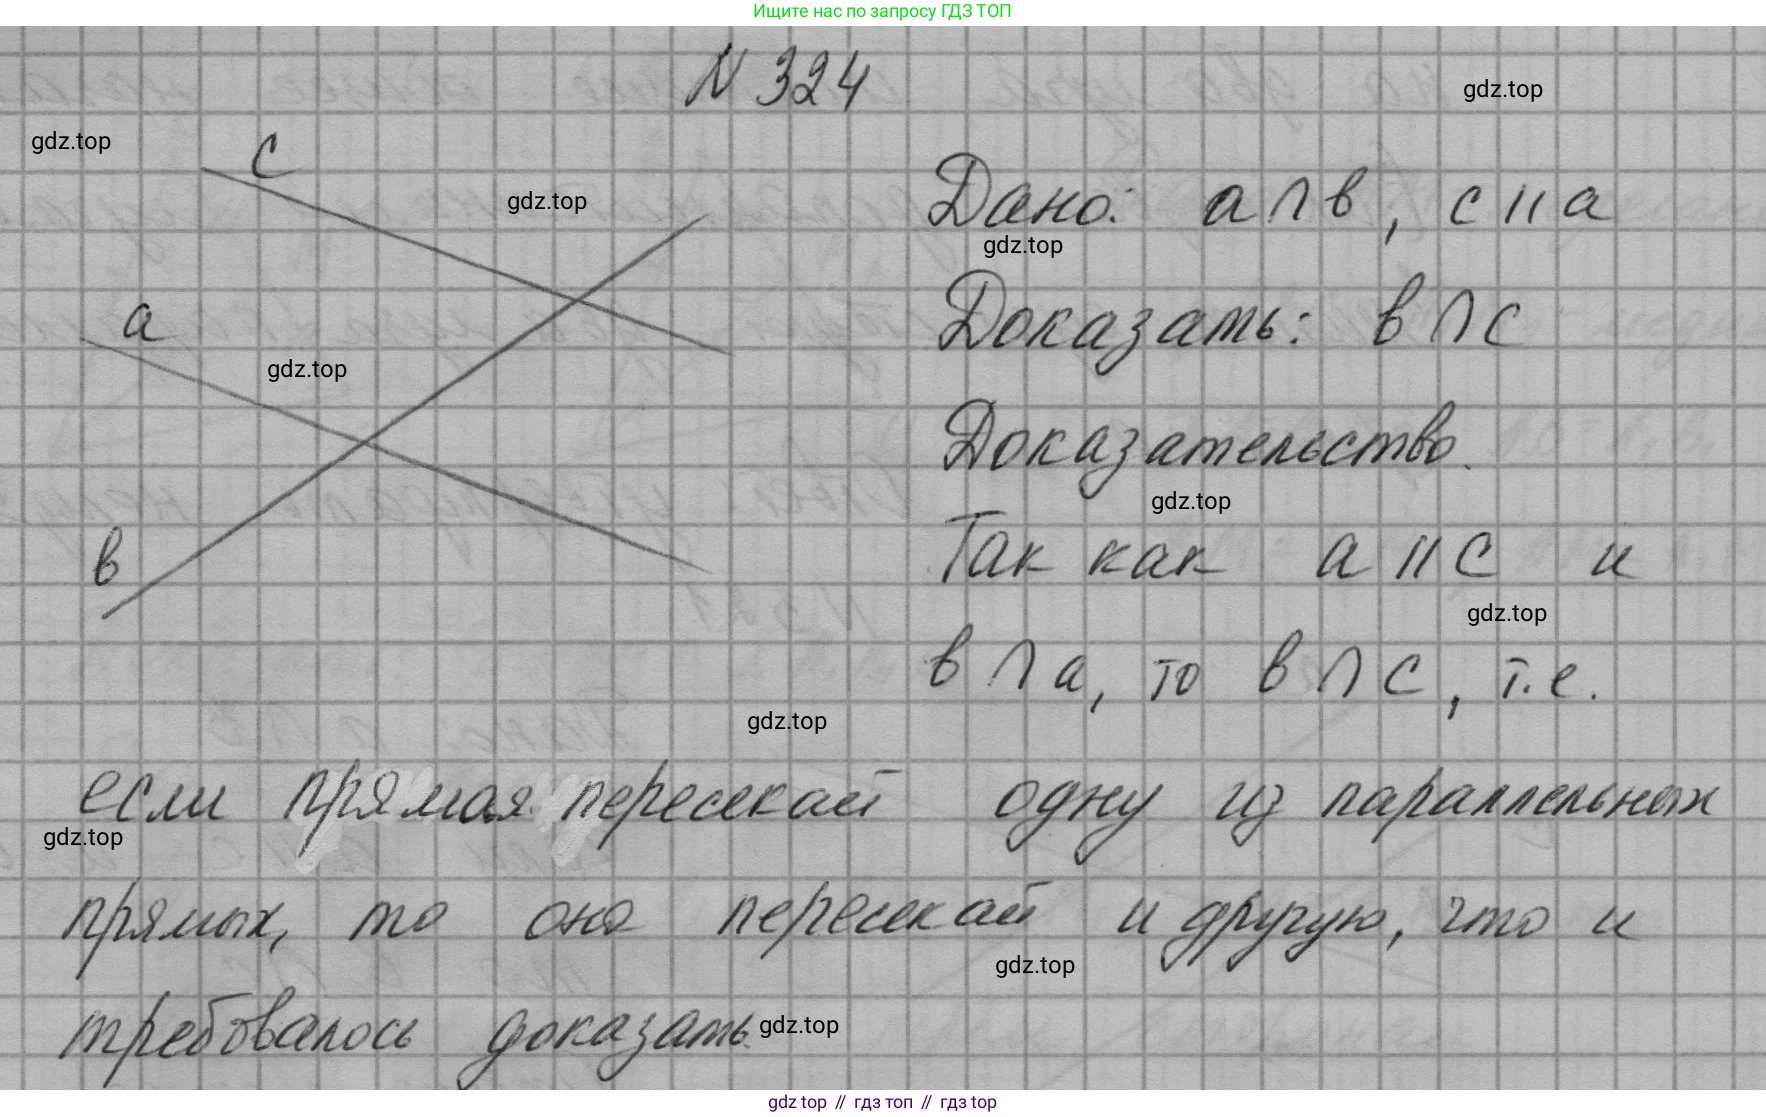 Ищите нас по запросу ГДЗ ТОП
N 324
gdz.top
gdz.top
c
gdz.top
Дано: a ∩ в, c || a
gdz.top
Доказать: в ∩ c
a
gdz.top
Доказательство.
gdz.top
Так как a || c и
в
gdz.top
в ∩ a, то в ∩ c, т.е.
gdz.top
если прямая пересекает одну из параллельных
gdz.top
прямых, то она пересекает и другую, что и
gdz.top
требовалось доказать.
gdz.top
gdz top // гдз топ // гдз top